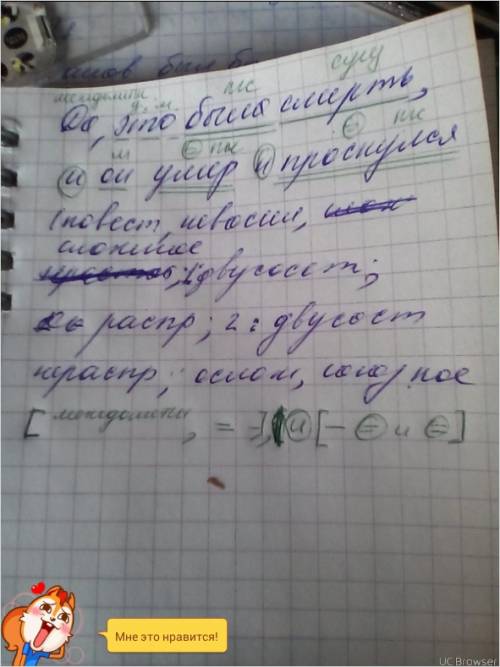 анов был б
междометие
ук. м. гл с сущ
Да, это была смерть,
м гл гл
и он умер и проснулся
(повест, невоскл,
сложное
1: двусост;
распр; 2: двусост
нераспр; ослож, союзное
[междометие, = -], (и) [- = и =]
Мне это нравится!
UC Browser